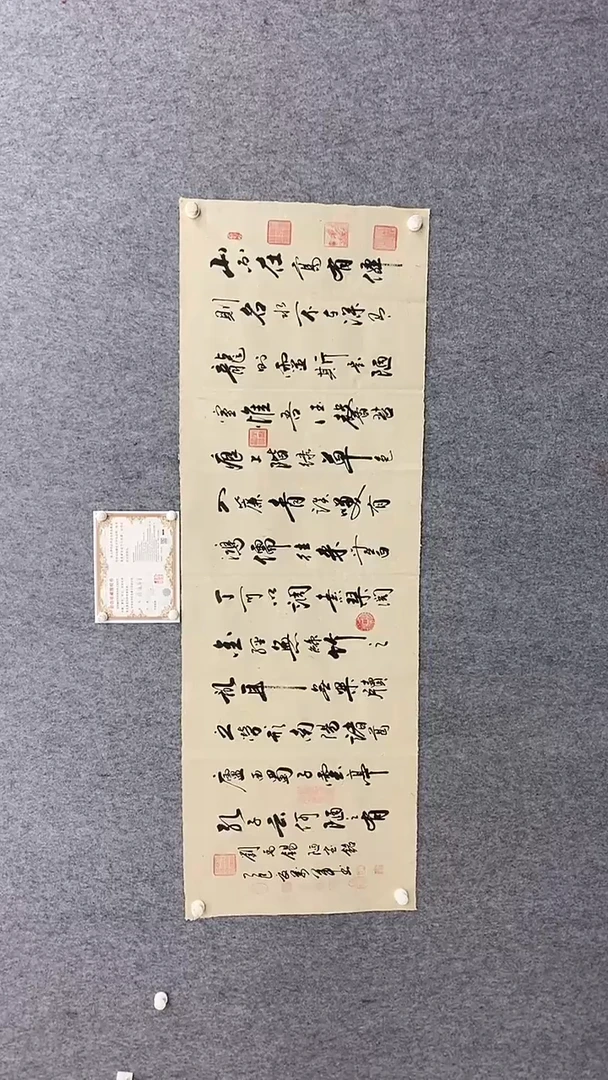 山不在高有僊
則名水不在深有
龍則靈斯是陋
室惟吾德馨苔
痕上階綠草色
入簾青談笑有
鴻儒往来無白
丁可以調素琴閱
金經無絲竹之
亂耳無案牘
之勞形南陽諸葛
廬西蜀子雲亭
孔子云何陋之有
劉禹錫陋室銘